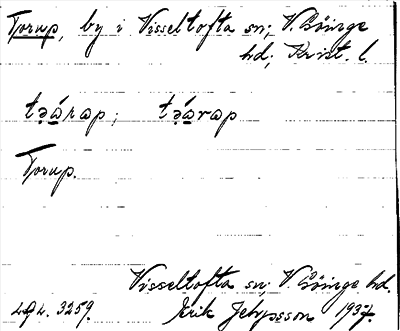 Torup, by i Visseltofta sn; V. Göinge
hd; Krist. l.
tǝá̱rap; tǝá̱rap
Torup.
Visseltofta sn V. Göinge hd.
Erik Jeppsson 1937.